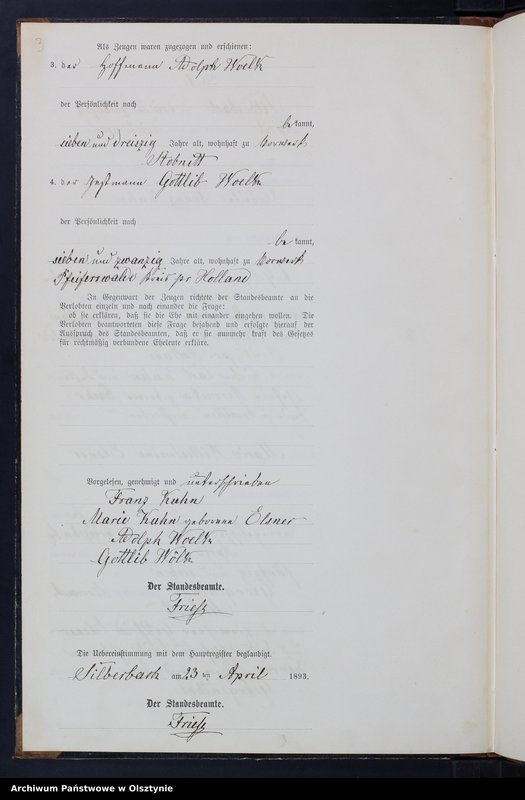 3
Als Zeugen waren zugezogen und erschienen:
3. der Hofmann Adolph Woelk
der Persönlichkeit nach
be kannt,
sieben und dreiszig Jahre alt, wohnhaft zu Vorwerk
Stobnitt
4. der Instmann Gottlib Woelk
der Persönlichkeit nach
be kannt,
sieben und zwanzig Jahre alt, wohnhaft zu Vorwerk
Pfeiferswalde Kreis pr Holland
In Gegenwart der Zeugen richtete der Standesbeamte an die
Verlobten einzeln und nach einander die Frage:
ob sie erklären, daß sie die Ehe mit einander eingehen wollen. Die
Verlobten beantworteten diese Frage bejahend und erfolgte hierauf der
Ausspruch des Standesbeamten, daß er sie nunmehr kraft des Gesetzes
für rechtmäßig verbundene Eheleute erkläre.
Vorgelesen, genehmigt und unterschrieben
Franz Kuhn
Marie Kuhn geborene Elsner
Adolph Woelk
Gottlib Wölk
Der Standesbeamte.
Die Uebereinstimmung mit dem Hauptregister beglaubigt.
Silberbach am 23 ten April 1893.
Der Standesbeamte.
Archiwum Państwowe w Olsztynie